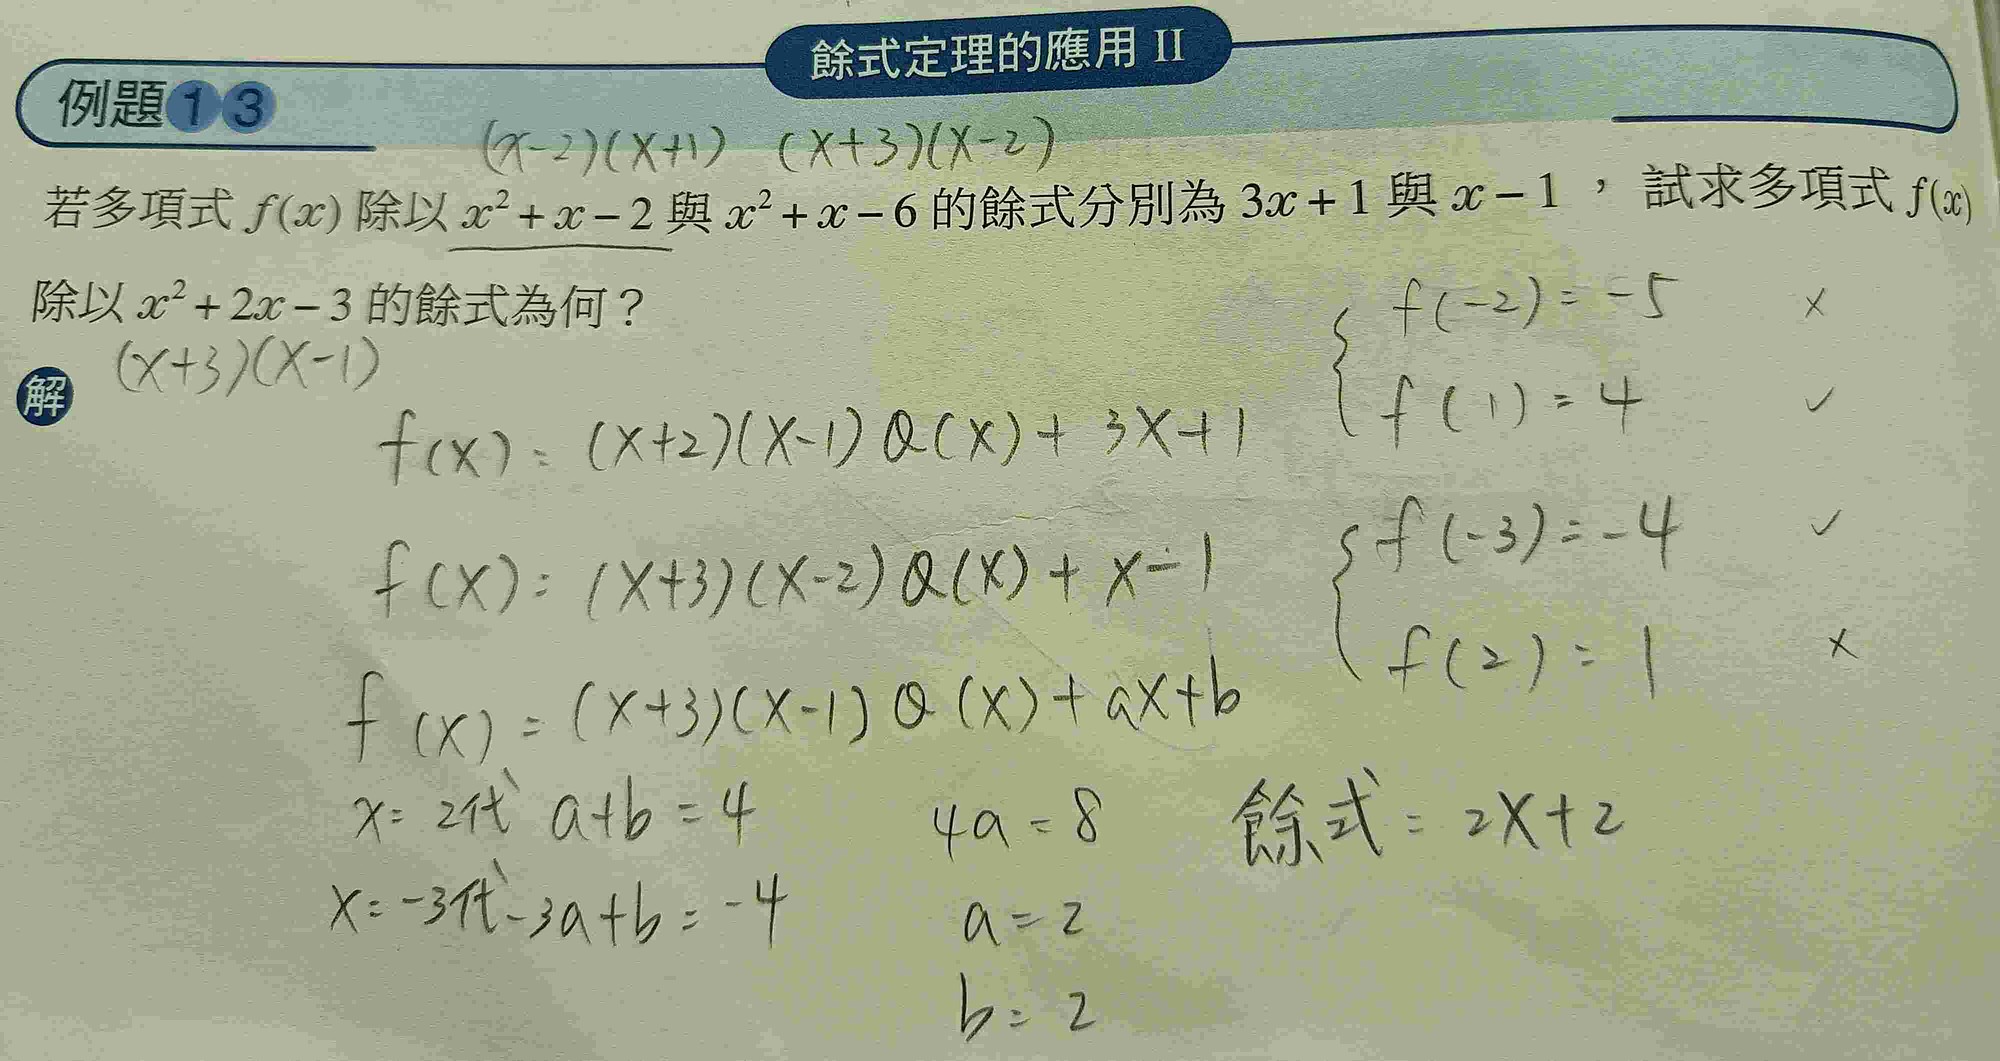 餘式定理的應用 II
例題13
(x-2)(x+1) (x+3)(x-2)
若多項式 f(x) 除以 x²+x-2 與 x²+x-6 的餘式分別為 3x+1 與 x-1，試求多項式 f(x)
除以 x²+2x-3 的餘式為何？
(x+3)(x-1)
解
f(x)=(x+2)(x-1)Q(x)+3x+1
f(x)=(x+3)(x-2)Q(x)+x-1
f(x)=(x+3)(x-1)Q(x)+ax+b
x=2代 a+b=4
x=-3代 -3a+b=-4
4a=8
a=2
b=2
{ f(-2)=-5 ×
f(1)=4 ✓
{ f(-3)=-4 ✓
f(2)=1 ×
餘式=2x+2